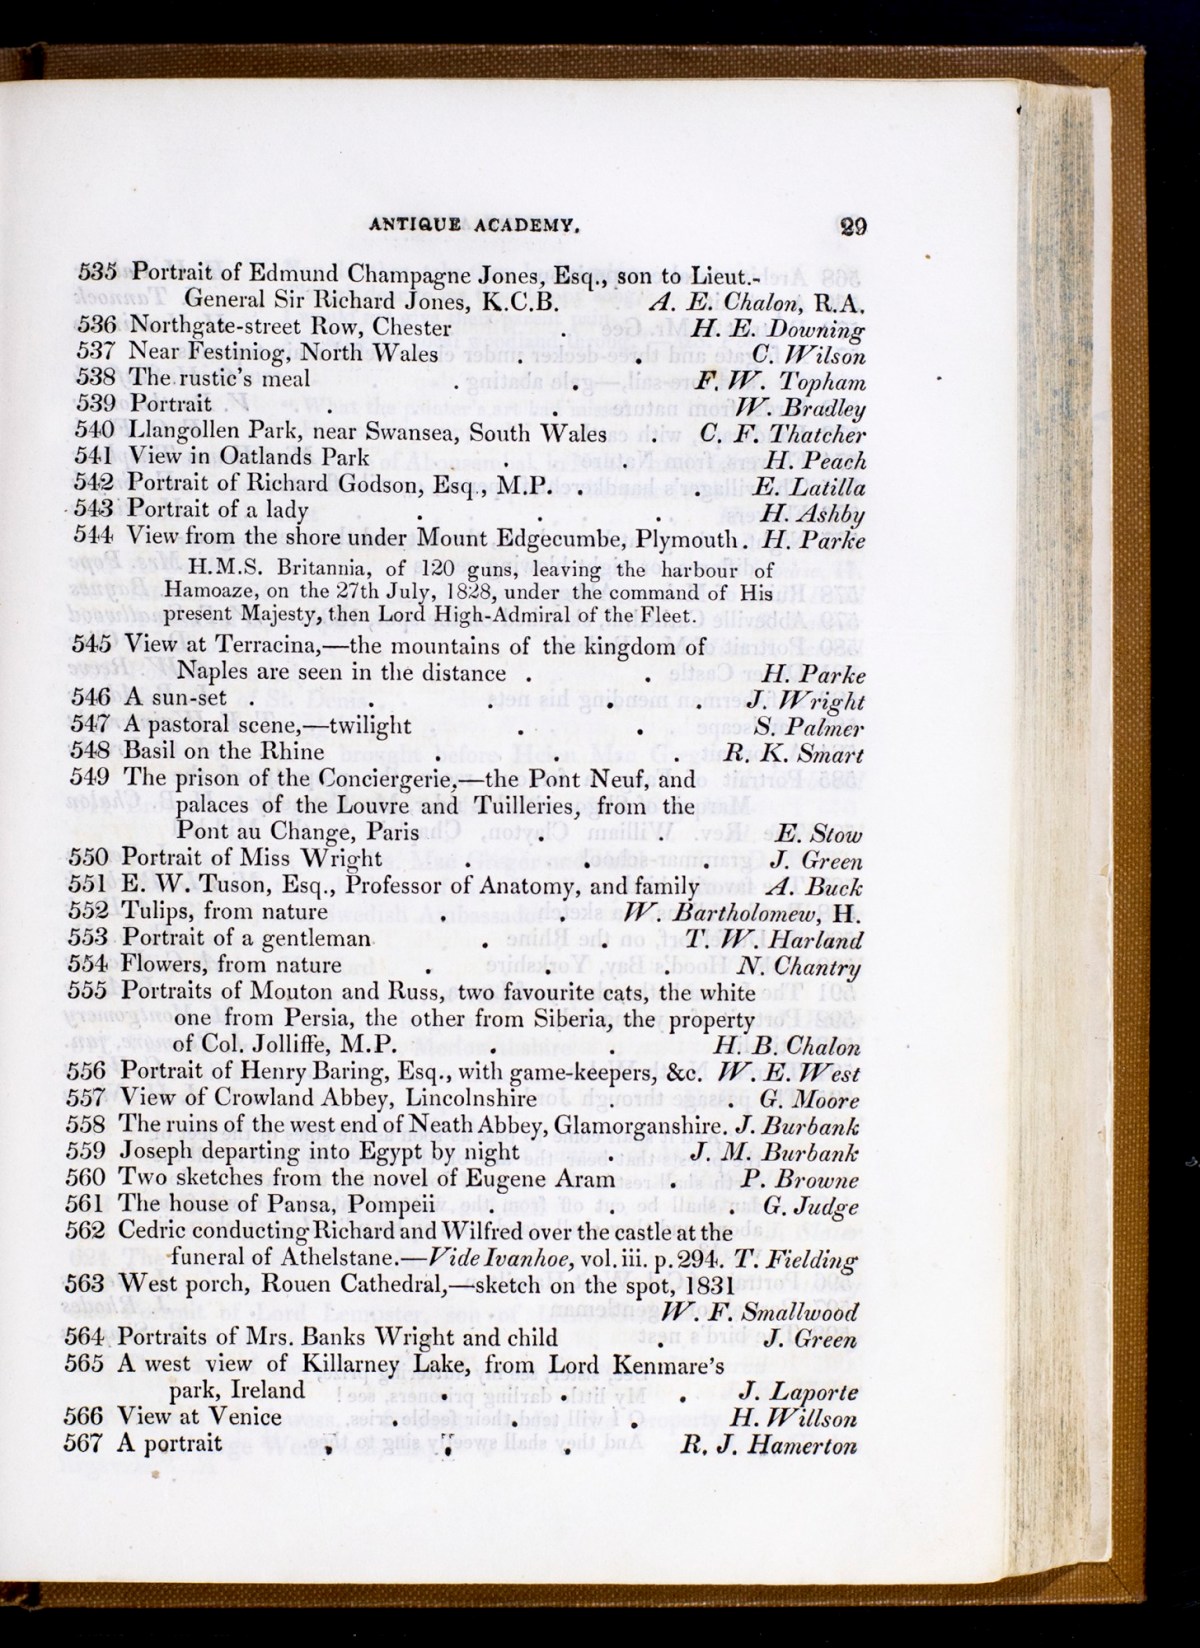 ANTIQUE ACADEMY. 29
535 Portrait of Edmund Champagne Jones, Esq., son to Lieut.-
General Sir Richard Jones, K.C.B. A. E. Chalon, R.A.
536 Northgate-street Row, Chester . H. E. Downing
537 Near Festiniog, North Wales . . C. Wilson
538 The rustic's meal . . F. W. Topham
539 Portrait . . W. Bradley
540 Llangollen Park, near Swansea, South Wales . C. F. Thatcher
541 View in Oatlands Park . . H. Peach
542 Portrait of Richard Godson, Esq., M.P. . . E. Latilla
543 Portrait of a lady . . . H. Ashby
544 View from the shore under Mount Edgecumbe, Plymouth. H. Parke
H.M.S. Britannia, of 120 guns, leaving the harbour of
Hamoaze, on the 27th July, 1828, under the command of His
present Majesty, then Lord High-Admiral of the Fleet.
545 View at Terracina,—the mountains of the kingdom of
Naples are seen in the distance . . H. Parke
546 A sun-set . . . . . J. Wright
547 A pastoral scene,—twilight . . S. Palmer
548 Basil on the Rhine . . . R. K. Smart
549 The prison of the Conciergerie,—the Pont Neuf, and
palaces of the Louvre and Tuilleries, from the
Pont au Change, Paris . . E. Stow
550 Portrait of Miss Wright . . . J. Green
551 E. W. Tuson, Esq., Professor of Anatomy, and family A. Buck
552 Tulips, from nature . . W. Bartholomew, H.
553 Portrait of a gentleman . . T. W. Harland
554 Flowers, from nature . . . N. Chantry
555 Portraits of Mouton and Russ, two favourite cats, the white
one from Persia, the other from Siberia, the property
of Col. Jolliffe, M.P. . . H. B. Chalon
556 Portrait of Henry Baring, Esq., with game-keepers, &c. W. E. West
557 View of Crowland Abbey, Lincolnshire . . G. Moore
558 The ruins of the west end of Neath Abbey, Glamorganshire. J. Burbank
559 Joseph departing into Egypt by night . J. M. Burbank
560 Two sketches from the novel of Eugene Aram . P. Browne
561 The house of Pansa, Pompeii . . G. Judge
562 Cedric conducting Richard and Wilfred over the castle at the
funeral of Athelstane.—Vide Ivanhoe, vol. iii. p. 294. T. Fielding
563 West porch, Rouen Cathedral,—sketch on the spot, 1831
W. F. Smallwood
564 Portraits of Mrs. Banks Wright and child . J. Green
565 A west view of Killarney Lake, from Lord Kenmare's
park, Ireland . . . J. Laporte
566 View at Venice . . . H. Willson
567 A portrait . . . R. J. Hamerton